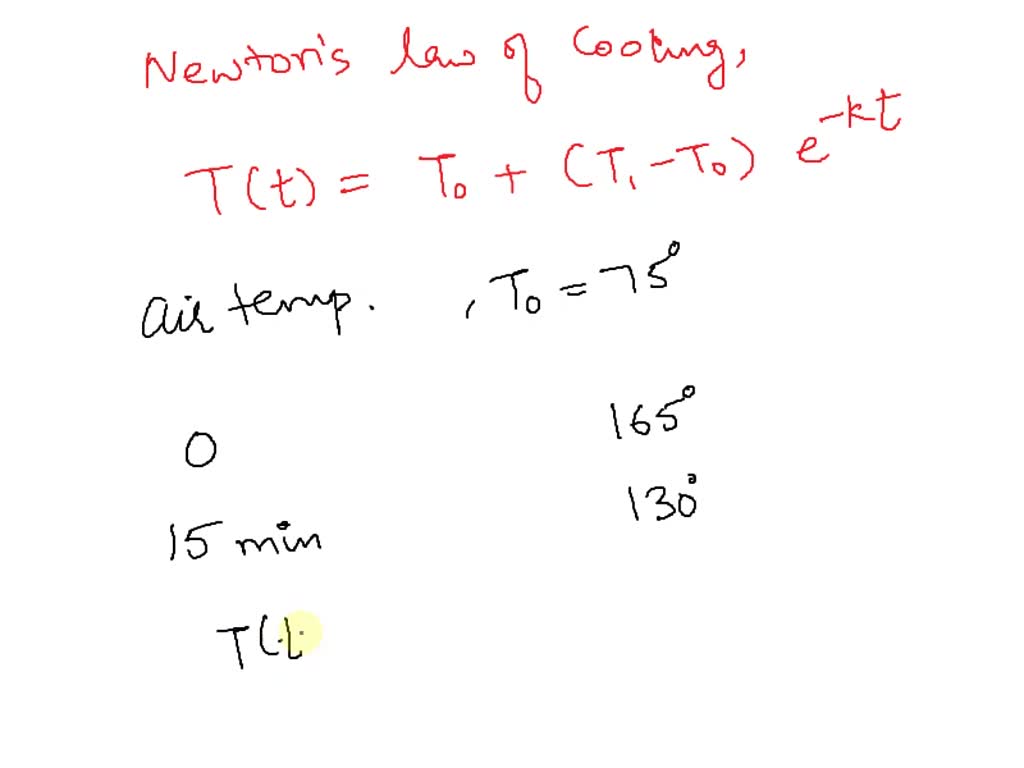 Newton's law of Cooling,
T(t) = T₀ + (T₁ - T₀) e^-kt
air temp. , T₀ = 75°
0 165°
15 min 130°
T(t